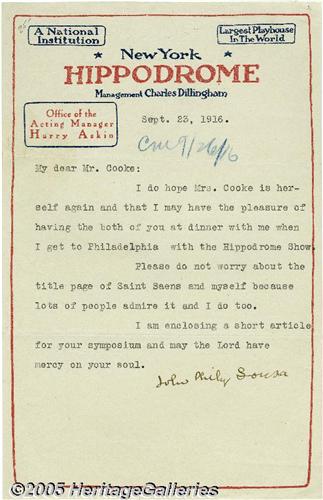 A National
Institution
Largest Playhouse
In The World
New York
HIPPODROME
Management Charles Dillingham
Office of the
Acting Manager
Harry Askin
Sept. 23, 1916.
9/26/16
My dear Mr. Cooke:
I do hope Mrs. Cooke is her-
self again and that I may have the pleasure of
having the both of you at dinner with me when
I get to Philadelphia with the Hippodrome Show.
Please do not worry about the
title page of Saint Saens and myself because
lots of people admire it and I do too.
I am enclosing a short article
for your symposium and may the Lord have
mercy on your soul.
John Philip Sousa
©2005 HeritageGalleries